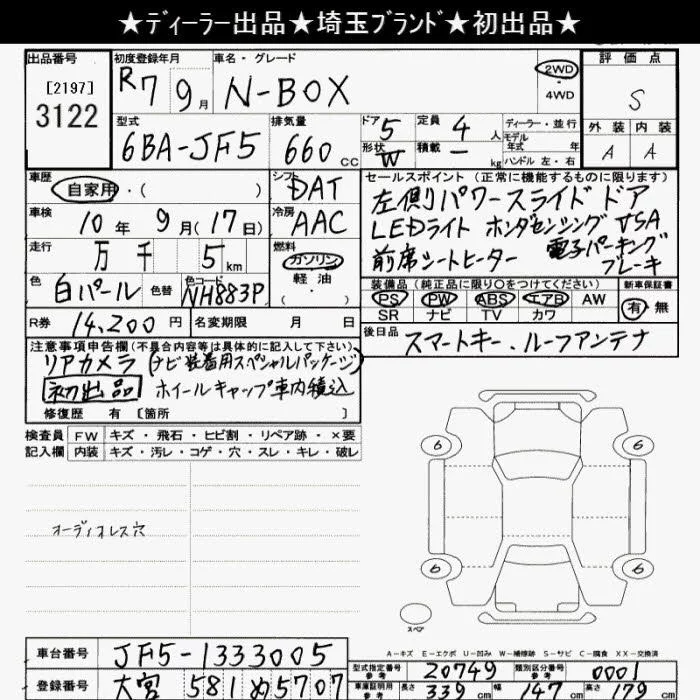 ★ディーラー出品★埼玉ブランド★初出品★
出品番号 初度登録年月 車名・グレード 評価点
[2197] R7 9月 N-BOX 2WD ・ 4WD S
3122 型式 排気量 ドア 5 定員 4人 ディーラー・並行 外装 内装
6BA-JF5 660cc 形状 W 積載 ー kg モデル年式 年式 ハンドル 左・右 A A
車歴 自家用・( ) シフト DAT セールスポイント(正常に機能するものに限ります)
車検 10年9月(17日) 冷房 AAC 左側パワースライドドア
走行 万 千 5km 燃料 ガソリン 軽油 ( ) LEDライト ホンダセンシング VSA
前席シートヒーター 電子パーキングブレーキ
色 白パール 色替 色コード NH883P 装備品(純正品に限り○をつけてください) 新車保証書
PS PW ABS エアB AW 有・無
SR ナビ TV カワ
R券 14,200円 名変期限 月 日 後日品 スマートキー、ルーフアンテナ
注意事項申告欄(不具合内容等は具体的に記入して下さい)
リアカメラ(ナビ装着用スペシャルパッケージ)
初出品 ホイールキャップ車内積込
修復歴 有 [箇所 ]
検査員 FW キズ・飛石・ヒビ割・リペア跡・×要
記入欄 内装 キズ・汚レ・コゲ・穴・スレ・キレ・破レ
6 6
オーディオレス穴
6 6
スペア
A-キズ E-エクボ U-凹み W-補修跡 S-サビ C-腐食 XX-交換済
車台番号 JF5-1333005 型式指定番号 参考 20749 類別区分番号 参考 0001
登録番号 大宮 581 ぬ5707 車庫証明用 参考 長さ 339cm 幅 147cm 高さ 179cm